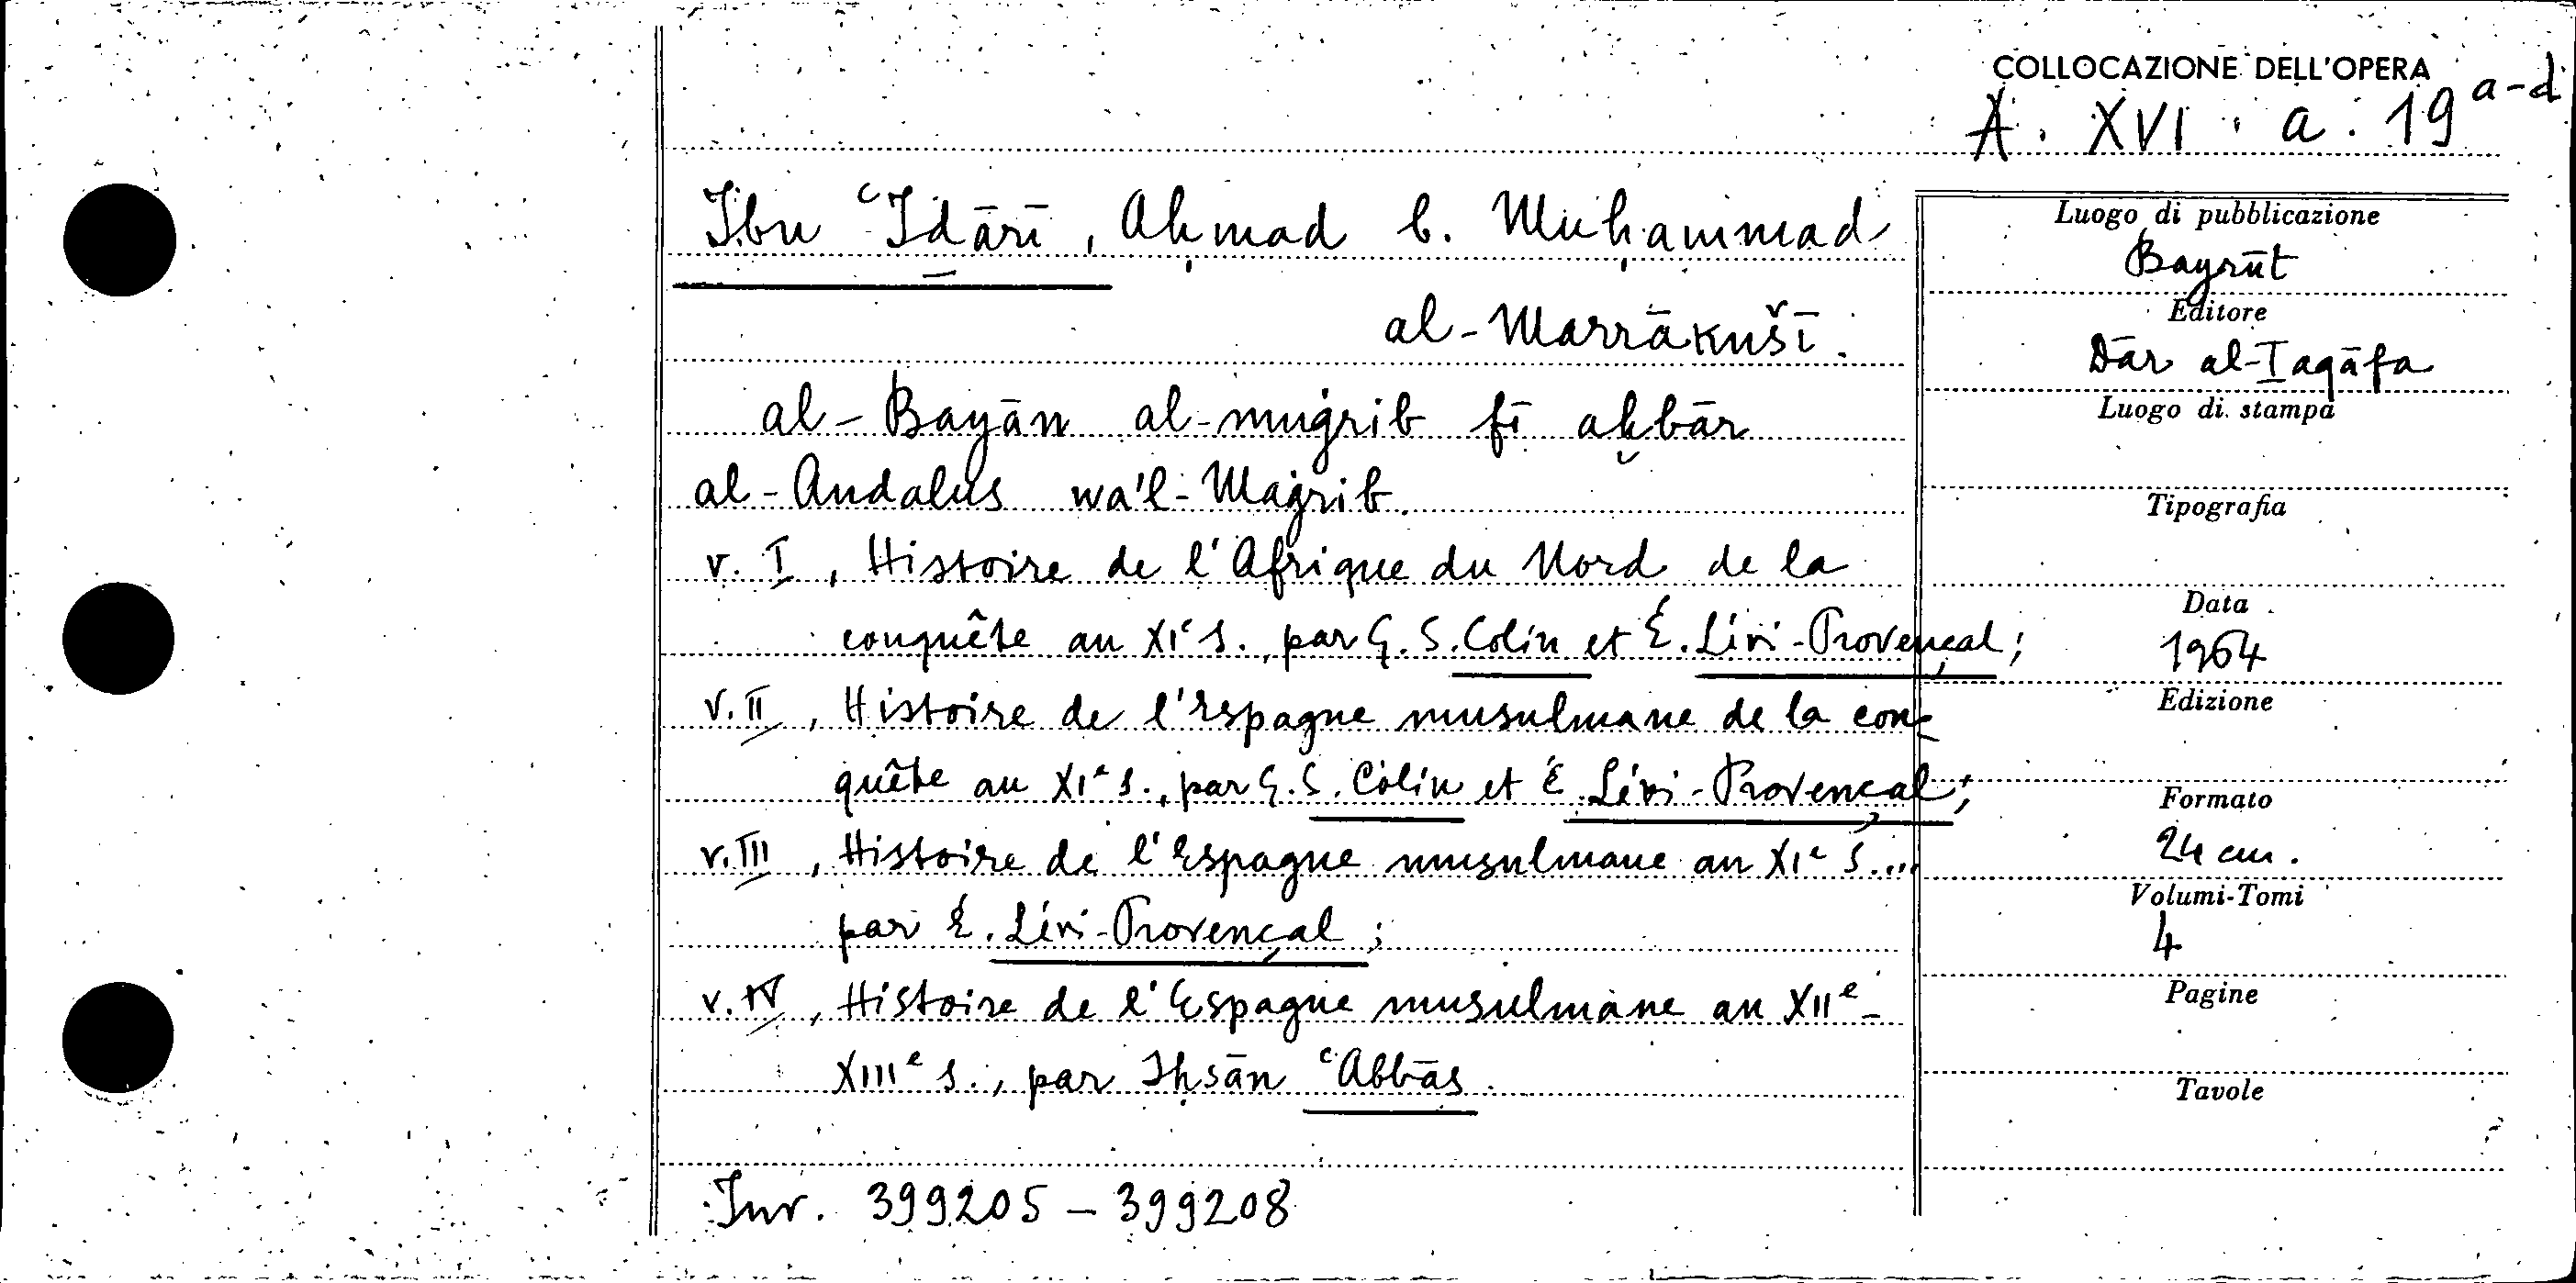 COLLOCAZIONE DELL'OPERA
A. XVI. a. 19 a-d
Ibn ʿIḏārī, Aḥmad b. Muḥammad
al-Marrākušī.
al-Bayān al-muġrib fī aḫbār
al-Andalus wa'l-Maġrib.
v. I, Histoire de l'Afrique du Nord de la
conquête au XIe s., par G. S. Colin et É. Lévi-Provençal;
v. II, Histoire de l'Espagne musulmane de la con-
quête au XIe s., par G. S. Colin et É. Lévi-Provençal;
v. III, Histoire de l'Espagne musulmane au XIe s....
par É. Lévi-Provençal;
v. IV, Histoire de l'Espagne musulmane au XIIe-
XIIIe s., par Iḥsān ʿAbbās.
Inv. 399205 - 399208
Luogo di pubblicazione
Bayrūt
Editore
Dār al-Ṯaqāfa
Luogo di stampa
Tipografia
Data
1964
Edizione
Formato
24 cm.
Volumi-Tomi
4
Pagine
Tavole